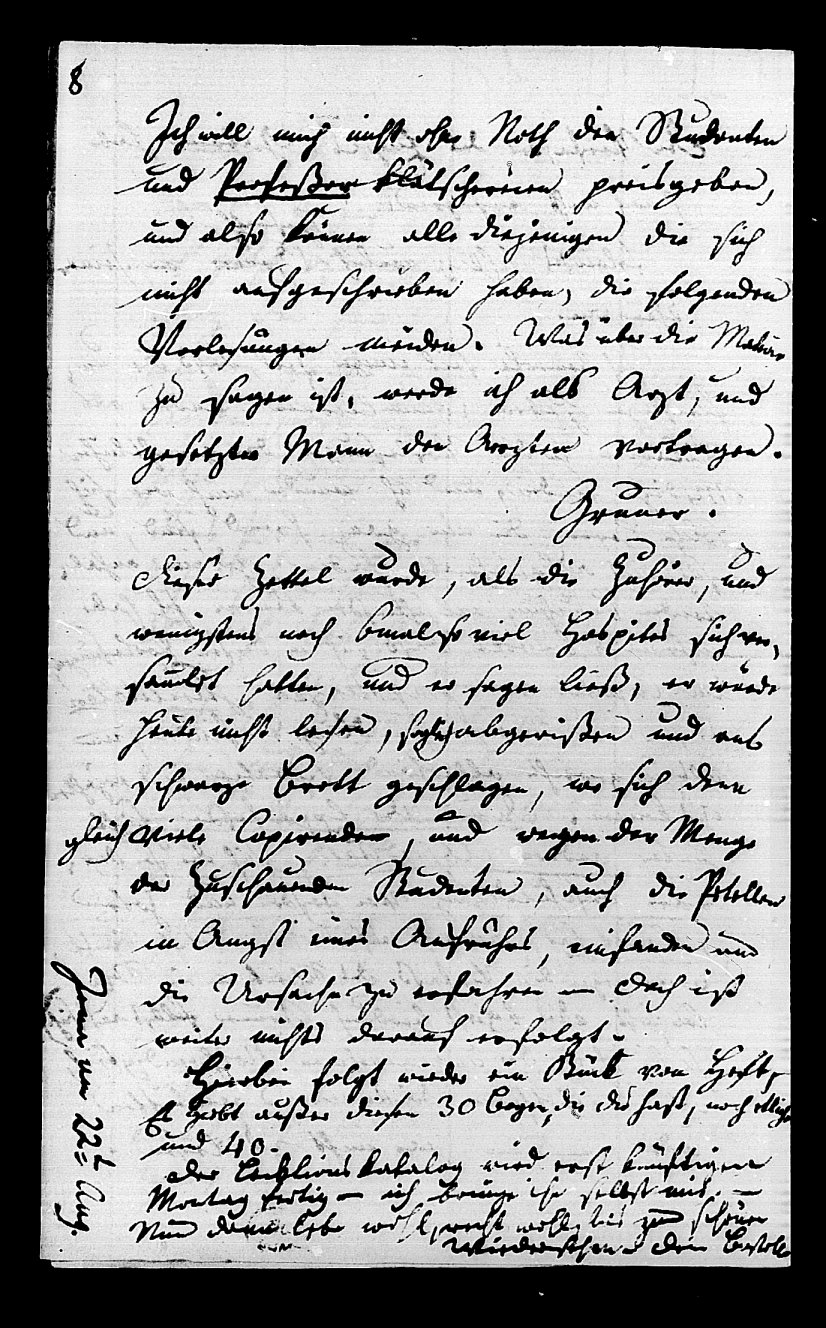 8
Ich will mich nicht ohne Noth den Studenten
und Professor klätschereien preisgeben,
und also können alle diejenigen die sich
nicht aufgeschrieben haben, die folgenden
Vorlesungen meiden. Was über die Materie
zu sagen ist, werde ich als Arzt, und
gesetzter Mann den Ärzten vortragen.
Gruner.
Dieser Zettel wurde, als die Zuhörer, und
wenigstens noch 6mal so viel Hospites sich ver-
samlet hatten, und er sagen ließ, er würde
heute nicht lesen, abgerißen und ans
schwarze Brett geschlagen, wo sich denn
gleich viele Copirenden, und wegen der Menge
der zuschauenden Studenten, auch die Pedellen
in Angst eines Aufruhrs, einfanden um
die Ursache zu erfahren — doch ist
weiter nichts darauf erfolgt.
Hierbei folgt wieder ein Stück von Heft,
Es gebt außer diesen 30 Bogen, die du hast, noch etliche
und 40.
Der Lecktions katalog wird erst künftigen
Montag fertig — ich bringe ihn selbst mit. —
Nun dann lebe wohl, recht wohl, bis zum schönen
Wiedersehen
Jena am 22t Aug.